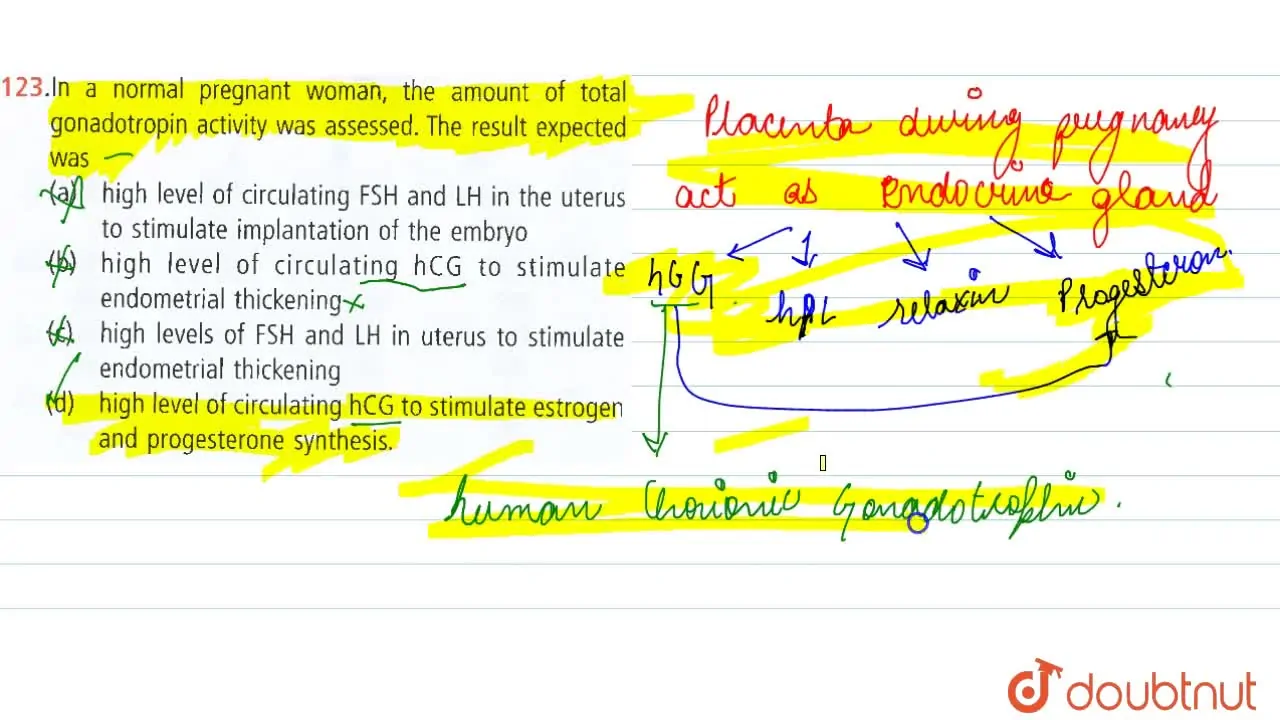 123.In a normal pregnant woman, the amount of total
gonadotropin activity was assessed. The result expected
was
(a) high level of circulating FSH and LH in the uterus
to stimulate implantation of the embryo
(b) high level of circulating hCG to stimulate
endometrial thickening
(c). high levels of FSH and LH in uterus to stimulate
endometrial thickening
(d) high level of circulating hCG to stimulate estrogen
and progesterone synthesis.
Placenta during pregnancy
act as endocrine gland
hCG hPL relaxin Progesteron.
human Chorionic Gonadotrophic.
doubtnut